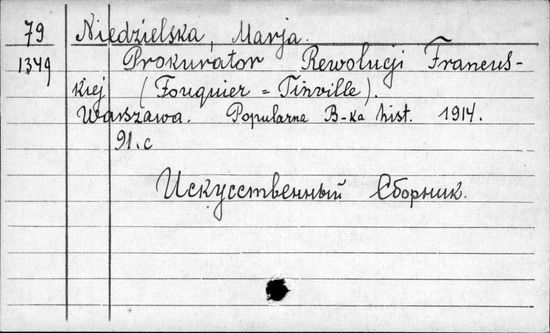 79 Niedzielska, Marja.
1349 Prokurator Rewolucji Francus-
kiej (Fouquier = Tinville).
Warszawa. Popularna B-ka hist. 1914.
91.c
Искусственный Сборник.